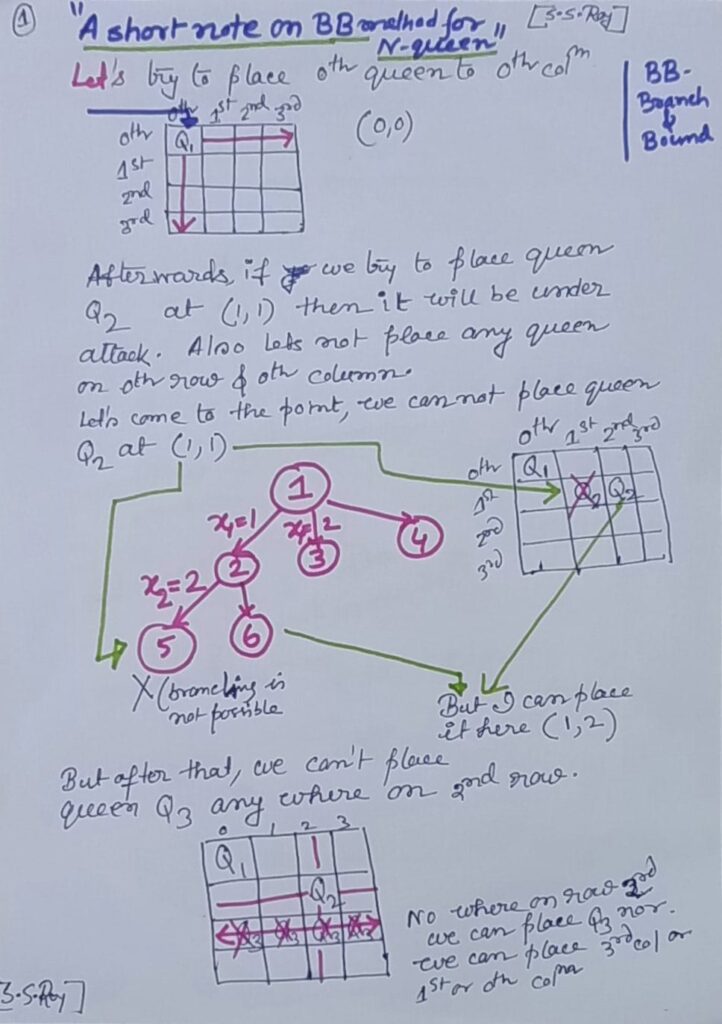 ①
"A short note on BB method for
N-queen"
[S.S.Roy]
Let's try to place 0th queen to 0th colm
BB-
Branch
&
Bound
0th 1st 2nd 3rd
0th Q1
1st
2nd
3rd
(0,0)
Afterwards, if we try to place queen
Q2 at (1,1) then it will be under
attack. Also lets not place any queen
on 0th row & 0th column.
Let's come to the point, we can not place queen
Q2 at (1,1)
0th 1st 2nd 3rd
0th Q1
1st Q2 Q2
2nd
3rd
1
x1=1 x1=2
2 3 4
x2=2
5 6
X (branching is
not possible
But I can place
it here (1,2)
But after that, we can't place
queen Q3 any where on 2nd row.
0 1 2 3
Q1
Q2
Q3 Q3 Q3 Q3
No where on row 2nd
we can place Q3 nor.
we can place 3rd col or
1st or 0th colmn
[S.S.Roy]